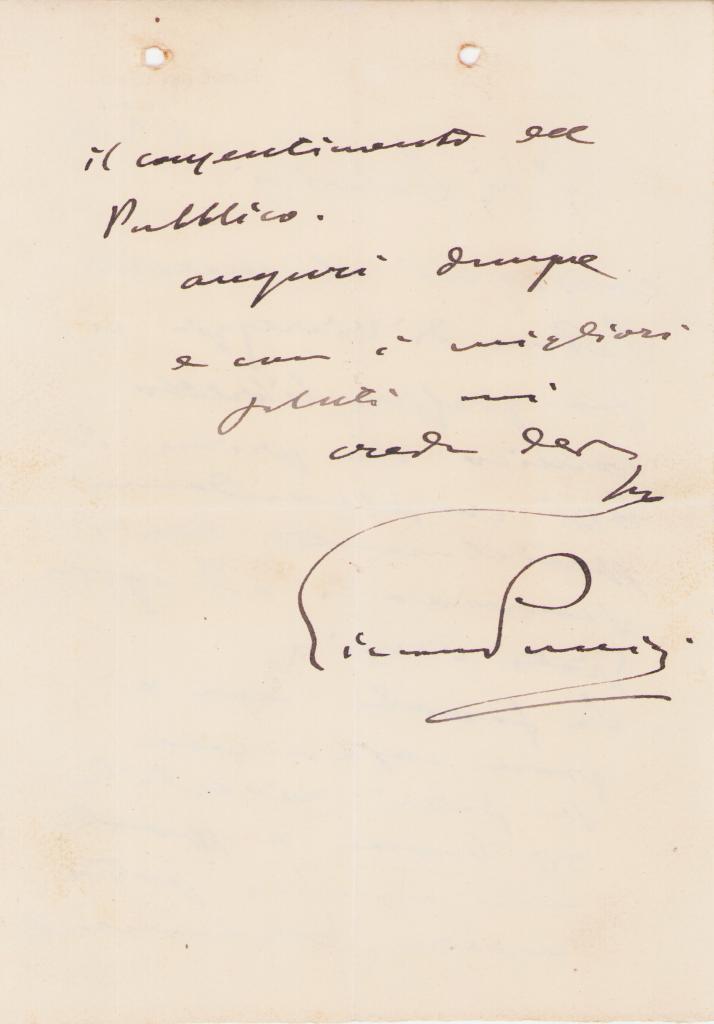 il consentimento del
Pubblico.
auguri dunque
e con i migliori
saluti mi
creda dev
mo
Giacomo Puccini